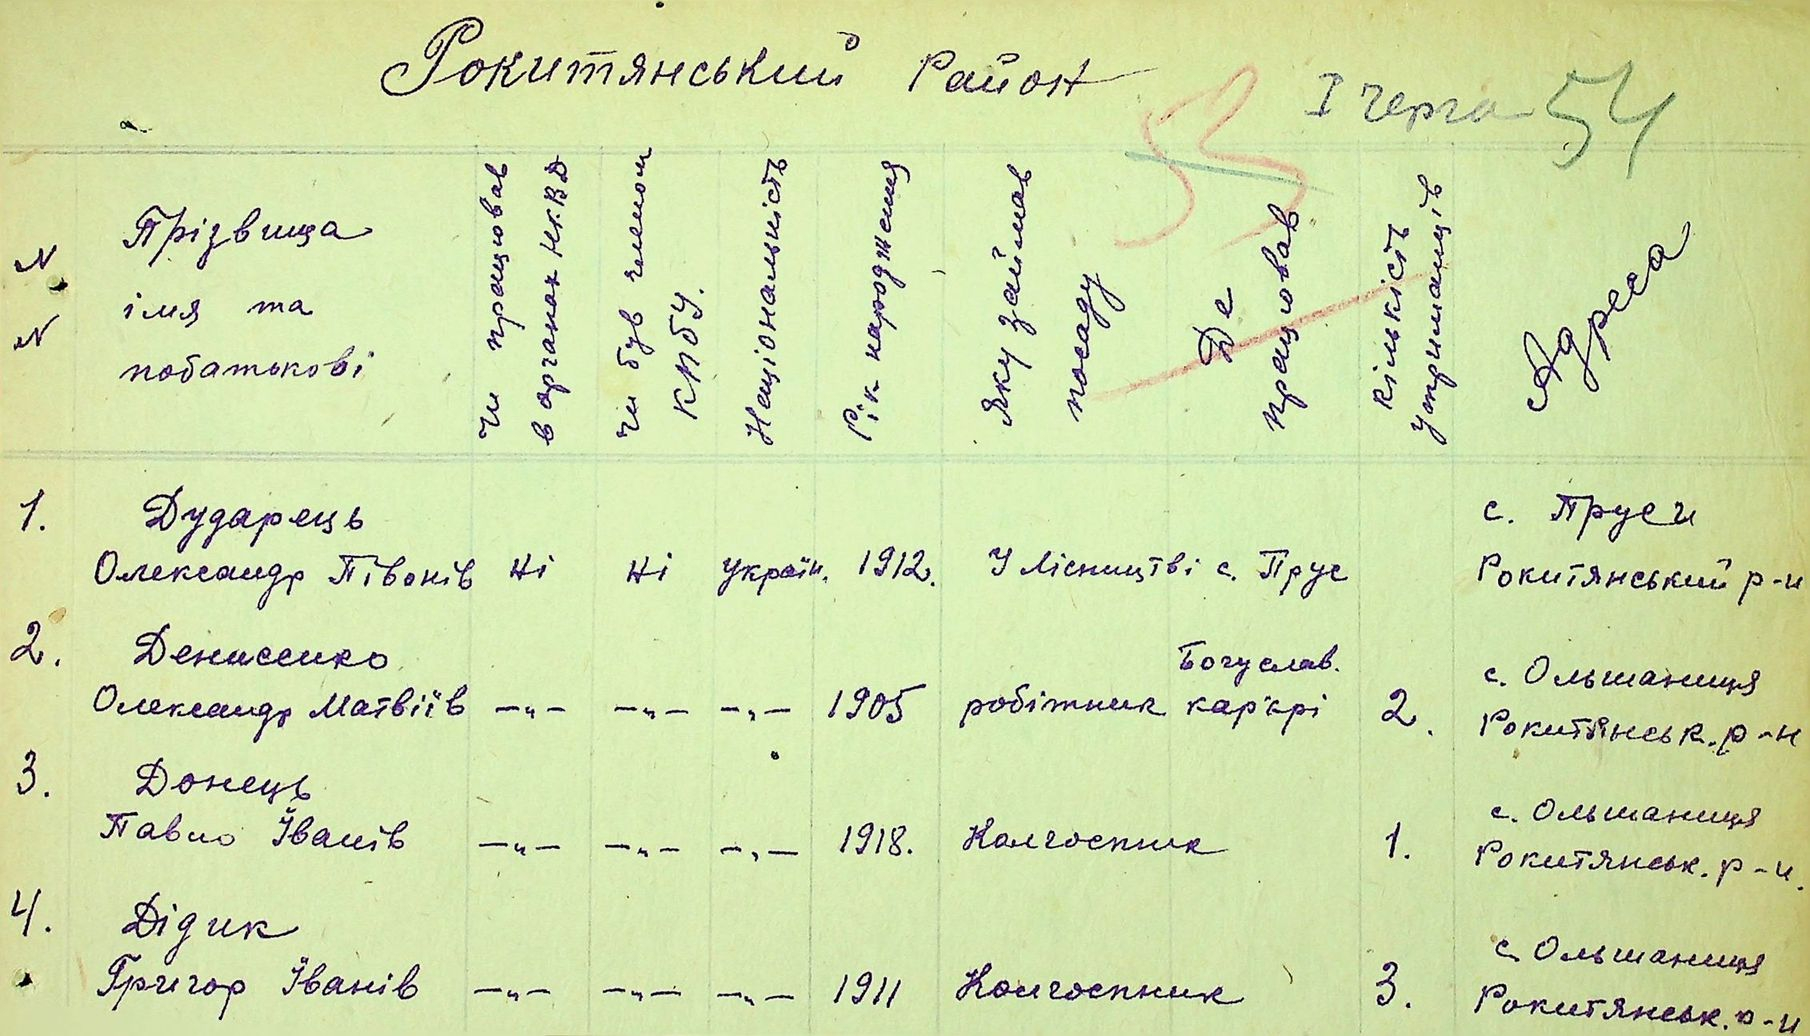 Рокитянський район
І черга 54
53
N N
Прізвища
імя та
побатькові
Чи працював
в органах НКВД
Чи був членом
КПбУ.
Національність
Рік народження
Яку займав
посаду
Де
працював
Кількість
утриманців
Адреса
1. Дударець с. Пруси
Олександр Півонів Ні Ні україн. 1912. У лісництві с. Прус Рокитянський р-н
2. Денисенко Богуслав. с. Ольшаниця
Олександр Матвіїв —„— —„— —„— 1905 робітник кар'єрі 2. Рокитянськ. р-н
3. Донець с. Ольшаниця
Павло Їванів —„— —„— —„— 1918. Колгоспник 1. Рокитянськ. р-н.
4. Дідик с. Ольшаниця
Григор Їванів —„— —„— —„— 1911 Колгоспник 3. Рокитянськ. р-н